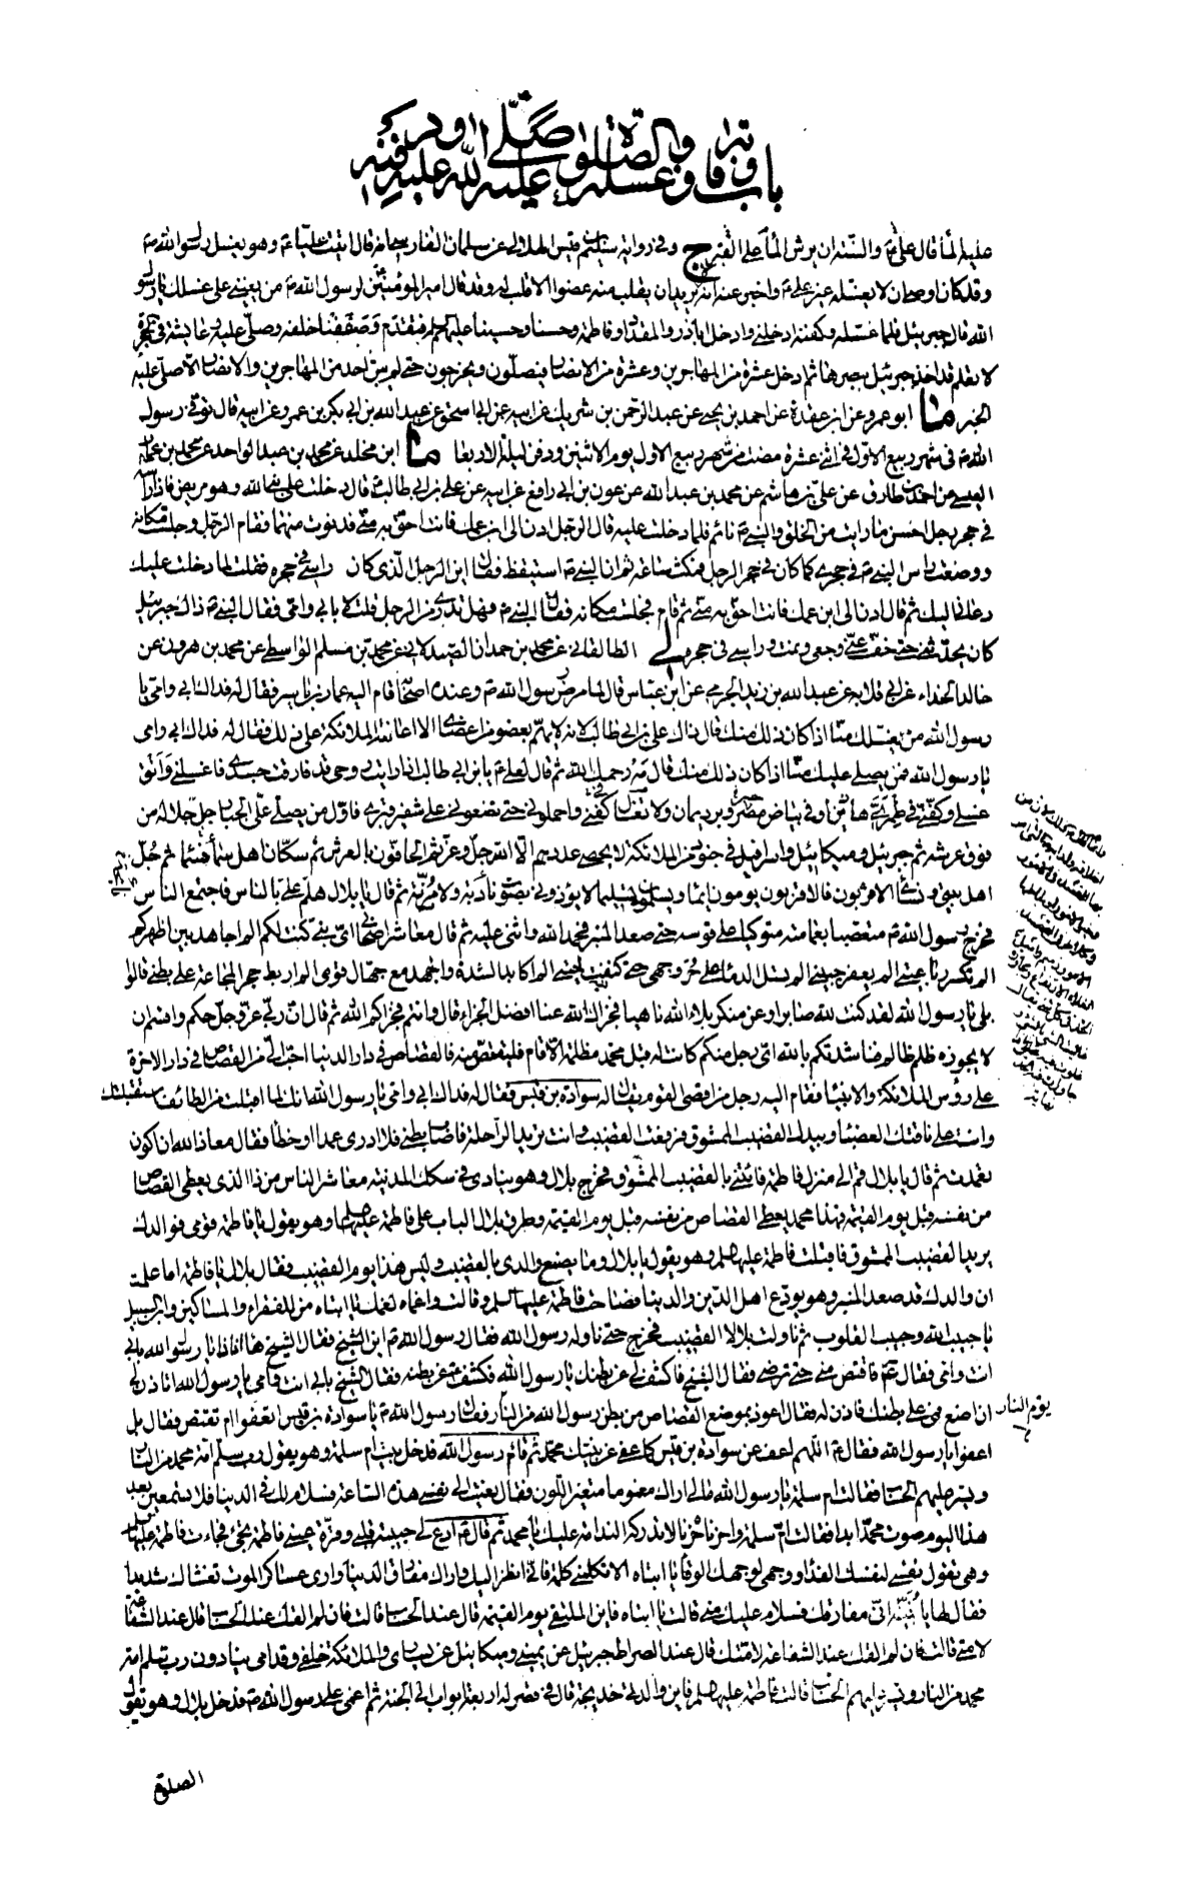 باب وفاته وغسله والصلوة عليه ودفنه صلى الله عليه
عليه الماء قال علي ع والسنة ان يرش الماء على القبر ج وفي رواية سليم بن قيس الهلالي عن سلمان الفارسي انه قال اتيت عليا ع وهو يغسل رسول الله ص
وقد كان اوصى ان لا يغسله غير علي ع واخبر عنه انه لا يريد ان يقلب منه عضوا الا قلب له وقد قال امير المؤمنين لرسول الله ص من يعينني على غسلك يا رسول
الله قال جبرئيل فلما غسله وكفنه ادخلني وادخل اباذر والمقداد وفاطمة وحسنا وحسينا عليهم فتقدم وصففنا خلفه وصلى عليه وعايشة في الحجرة
لا تعلم قد اخذ جبرئيل ببصرها ثم دخل عشرة من المهاجرين وعشرة من الانصار فيصلون ويخرجون حتى لم يبق احد من المهاجرين والانصار الا صلى عليه
الخبر ما ابو عمرو عن ابن عقدة عن احمد بن يحيى عن عبد الرحمن بن شريك عن ابيه عن ابي اسحق عن عبد الله بن ابي بكر بن عمرو عن ابيه قال توفي رسول
الله ص في شهر ربيع الاول في اثنى عشرة مضت من شهر ربيع الاول يوم الاثنين ودفن ليلة الاربعاء ما ابن مخلد عن محمد بن عبد الواحد عن محمد بن عثمان
العبسي عن احمد بن طارق عن علي بن هاشم عن محمد بن عبد الله عن عون بن ابي رافع عن ابيه عن علي بن ابي طالب ع قال دخلت على نبي الله وهو مريض فاذا راسه
في حجر رجل احسن ما رايت من الخلق والنبي ص نائم فلما دخلت عليه قال الرجل ادن الى ابن عمك فانت احق به مني فدنوت منهما فقام الرجل وجلست مكانه
ووضعت راس النبي ص في حجري كما كان في حجر الرجل فمكثت ساعة ثم ان النبي ص استيقظ فقال اين الرجل الذي كان راسي في حجره فقلت لما دخلت عليك
دعاني اليك ثم قال ادن الى ابن عمك فانت احق به مني ثم قام فجلست مكانه فقال النبي ص فهل تدري من الرجل قلت لا بابي وامي فقال النبي ص ذاك جبرئيل
كان يحدثني حتى خف عني وجعي ونمت وراسي في حجره لي الطالقاني عن محمد بن حمدان الصيدلاني عن محمد بن مسلم الواسطي عن محمد بن هرون عن
خالد الحذاء عن ابي قلابة عن عبد الله بن زيد الجرمي عن ابن عباس قال لما مرض رسول الله ص وعنده اصحابه قام اليه عمار بن ياسر فقال له فداك ابي وامي يا
رسول الله من يغسلك منا اذا كان ذلك منك قال ذاك علي بن ابي طالب لانه لا يهم بعضو من اعضائي الا اعانته الملائكة على ذلك فقال له فداك ابي وامي
يا رسول الله فمن يصلي عليك منا اذا كان ذلك منك قال مه رحمك الله ثم قال لعلي ع يا بن ابي طالب اذا رايت روحي قد فارقت جسدي فاغسلني وانق
غسلي وكفني في طمري هذين او في بياض مصر وبرد يمان ولا تغال في كفني واحملوني حتى تضعوني على شفير قبري فاول من يصلي علي الجبار جل جلاله من
فوق عرشه ثم جبرئيل وميكائيل واسرافيل في جنود من الملائكة لا يحصي عددهم الا الله جل وعز ثم الحافون بالعرش ثم سكان اهل سماء فسماء ثم جل
اهل بيتي ونسائي الاقربون فالاقربون يومون ايماء ويسلمون تسليما لا يؤذوني بصوت نادبة ولا مرنة ثم قال يا بلال هلم علي بالناس فاجتمع الناس
فخرج رسول الله ص متعصبا بعمامته متوكيا على قوسه حتى صعد المنبر فحمد الله واثنى عليه ثم قال معاشر اصحابي اي نبي كنت لكم الم اجاهد بين اظهركم
الم تكسر رباعيتي الم يعفر جبيني الم تسل الدماء على حر وجهي حتى كنفت لحيتي الم اكابد الشدة والجهد مع جهال قومي الم اربط حجر المجاعة على بطني قالوا
بلى يا رسول الله لقد كنت لله صابرا وعن منكر بلاء الله ناهيا فجزاك الله عنا افضل الجزاء قال وانتم فجزاكم الله ثم قال ان ربي عز وجل حكم واقسم ان
لا يجوزه ظلم ظالم فناشدتكم بالله اي رجل منكم كانت له قبل محمد مظلمة الا قام فليقتص منه فالقصاص في دار الدنيا احب الي من القصاص في دار الاخرة
على رؤس الملائكة والانبياء فقام اليه رجل من اقصى القوم يقال له سوادة بن قيس فقال له فداك ابي وامي يا رسول الله انك لما اقبلت من الطائف استقبلتك
وانت على ناقتك العضباء وبيدك القضيب الممشوق فرفعت القضيب وانت تريد الراحلة فاصاب بطني فلا ادري عمدا او خطأ فقال معاذ الله ان اكون
تعمدت ثم قال يا بلال قم الى منزل فاطمة فائتني بالقضيب الممشوق فخرج بلال وهو ينادي في سكك المدينة معاشر الناس من ذا الذي يعطي القصاص
من نفسه قبل يوم القيمة فهذا محمد يعطي القصاص من نفسه قبل يوم القيمة وطرق بلال الباب على فاطمة عليها وهو يقول يا فاطمة قومي فوالدك
يريد القضيب الممشوق فاقبلت فاطمة عليها وهو يقول يا بلال وما يصنع والدي بالقضيب وليس هذا يوم القضيب فقال بلال يا فاطمة اما علمت
ان والدك قد صعد المنبر وهو يودع اهل الدين والدنيا فصاحت فاطمة عليها السلم وقالت واغماه لغمك يا ابتاه من للفقراء والمساكين وابن السبيل
يا حبيب الله وحبيب القلوب ثم ناولت بلالا القضيب فخرج حتى ناوله رسول الله فقال رسول الله ص اين الشيخ فقال الشيخ ها انا ذا يا رسول الله بابي
انت وامي فقال تعال فاقتص مني حتى ترضى فقال الشيخ فاكشف لي عن بطنك يا رسول الله فكشف ص عن بطنه فقال الشيخ بابي انت وامي يا رسول الله اتاذن لي
ان اضع فمي على بطنك فاذن له فقال اعوذ بموضع القصاص من بطن رسول الله من النار فقال رسول الله ص يا سوادة بن قيس اتعفو ام تقتص فقال بل
يوم النار
اعفو يا رسول الله فقال ص اللهم اعف عن سوادة بن قيس كما عفى عن نبيك محمد ثم قام رسول الله فدخل بيت ام سلمة وهو يقول رب سلم امة محمد من النار
ويسر عليهم الحساب فقالت ام سلمة يا رسول الله مالي اراك مغموما متغير اللون فقال نعيت الي نفسي هذه الساعة فسلام لك في الدنيا فلا تسمعين بعد
هذا اليوم صوت محمد ابدا فقالت ام سلمة واحزناه حزنا لا تدركه الندامة عليك يا محمد ثم قال ع ادع لي حبيبة قلبي وقرة عيني فاطمة تجئ فجاءت فاطمة عليها
وهي تقول نفسي لنفسك الفداء ووجهي لوجهك الوقاء يا ابتاه الا تكلمني كلمة فاني انظر اليك واراك مفارق الدنيا وارى عساكر الموت تغشاك شديدا
فقال لها يا بنية اني مفارقك فسلام عليك مني قالت يا ابتاه فاين الملتقى يوم القيمة قال عند الحساب قالت فان لم القك عند الحساب قال عند الشفاعة
لامتي قالت فان لم القك عند الشفاعة لامتك قال عند الصراط جبرئيل عن يميني وميكائيل عن يساري والملائكة خلفي وقدامي ينادون رب سلم امة
محمد من النار ويسر عليهم الحساب قالت فاطمة عليها فاين والدتي خديجة قال في قصر له اربعة ابواب الى الجنة ثم اغمي على رسول الله ص فدخل بلال وهو يقول
الصلوة